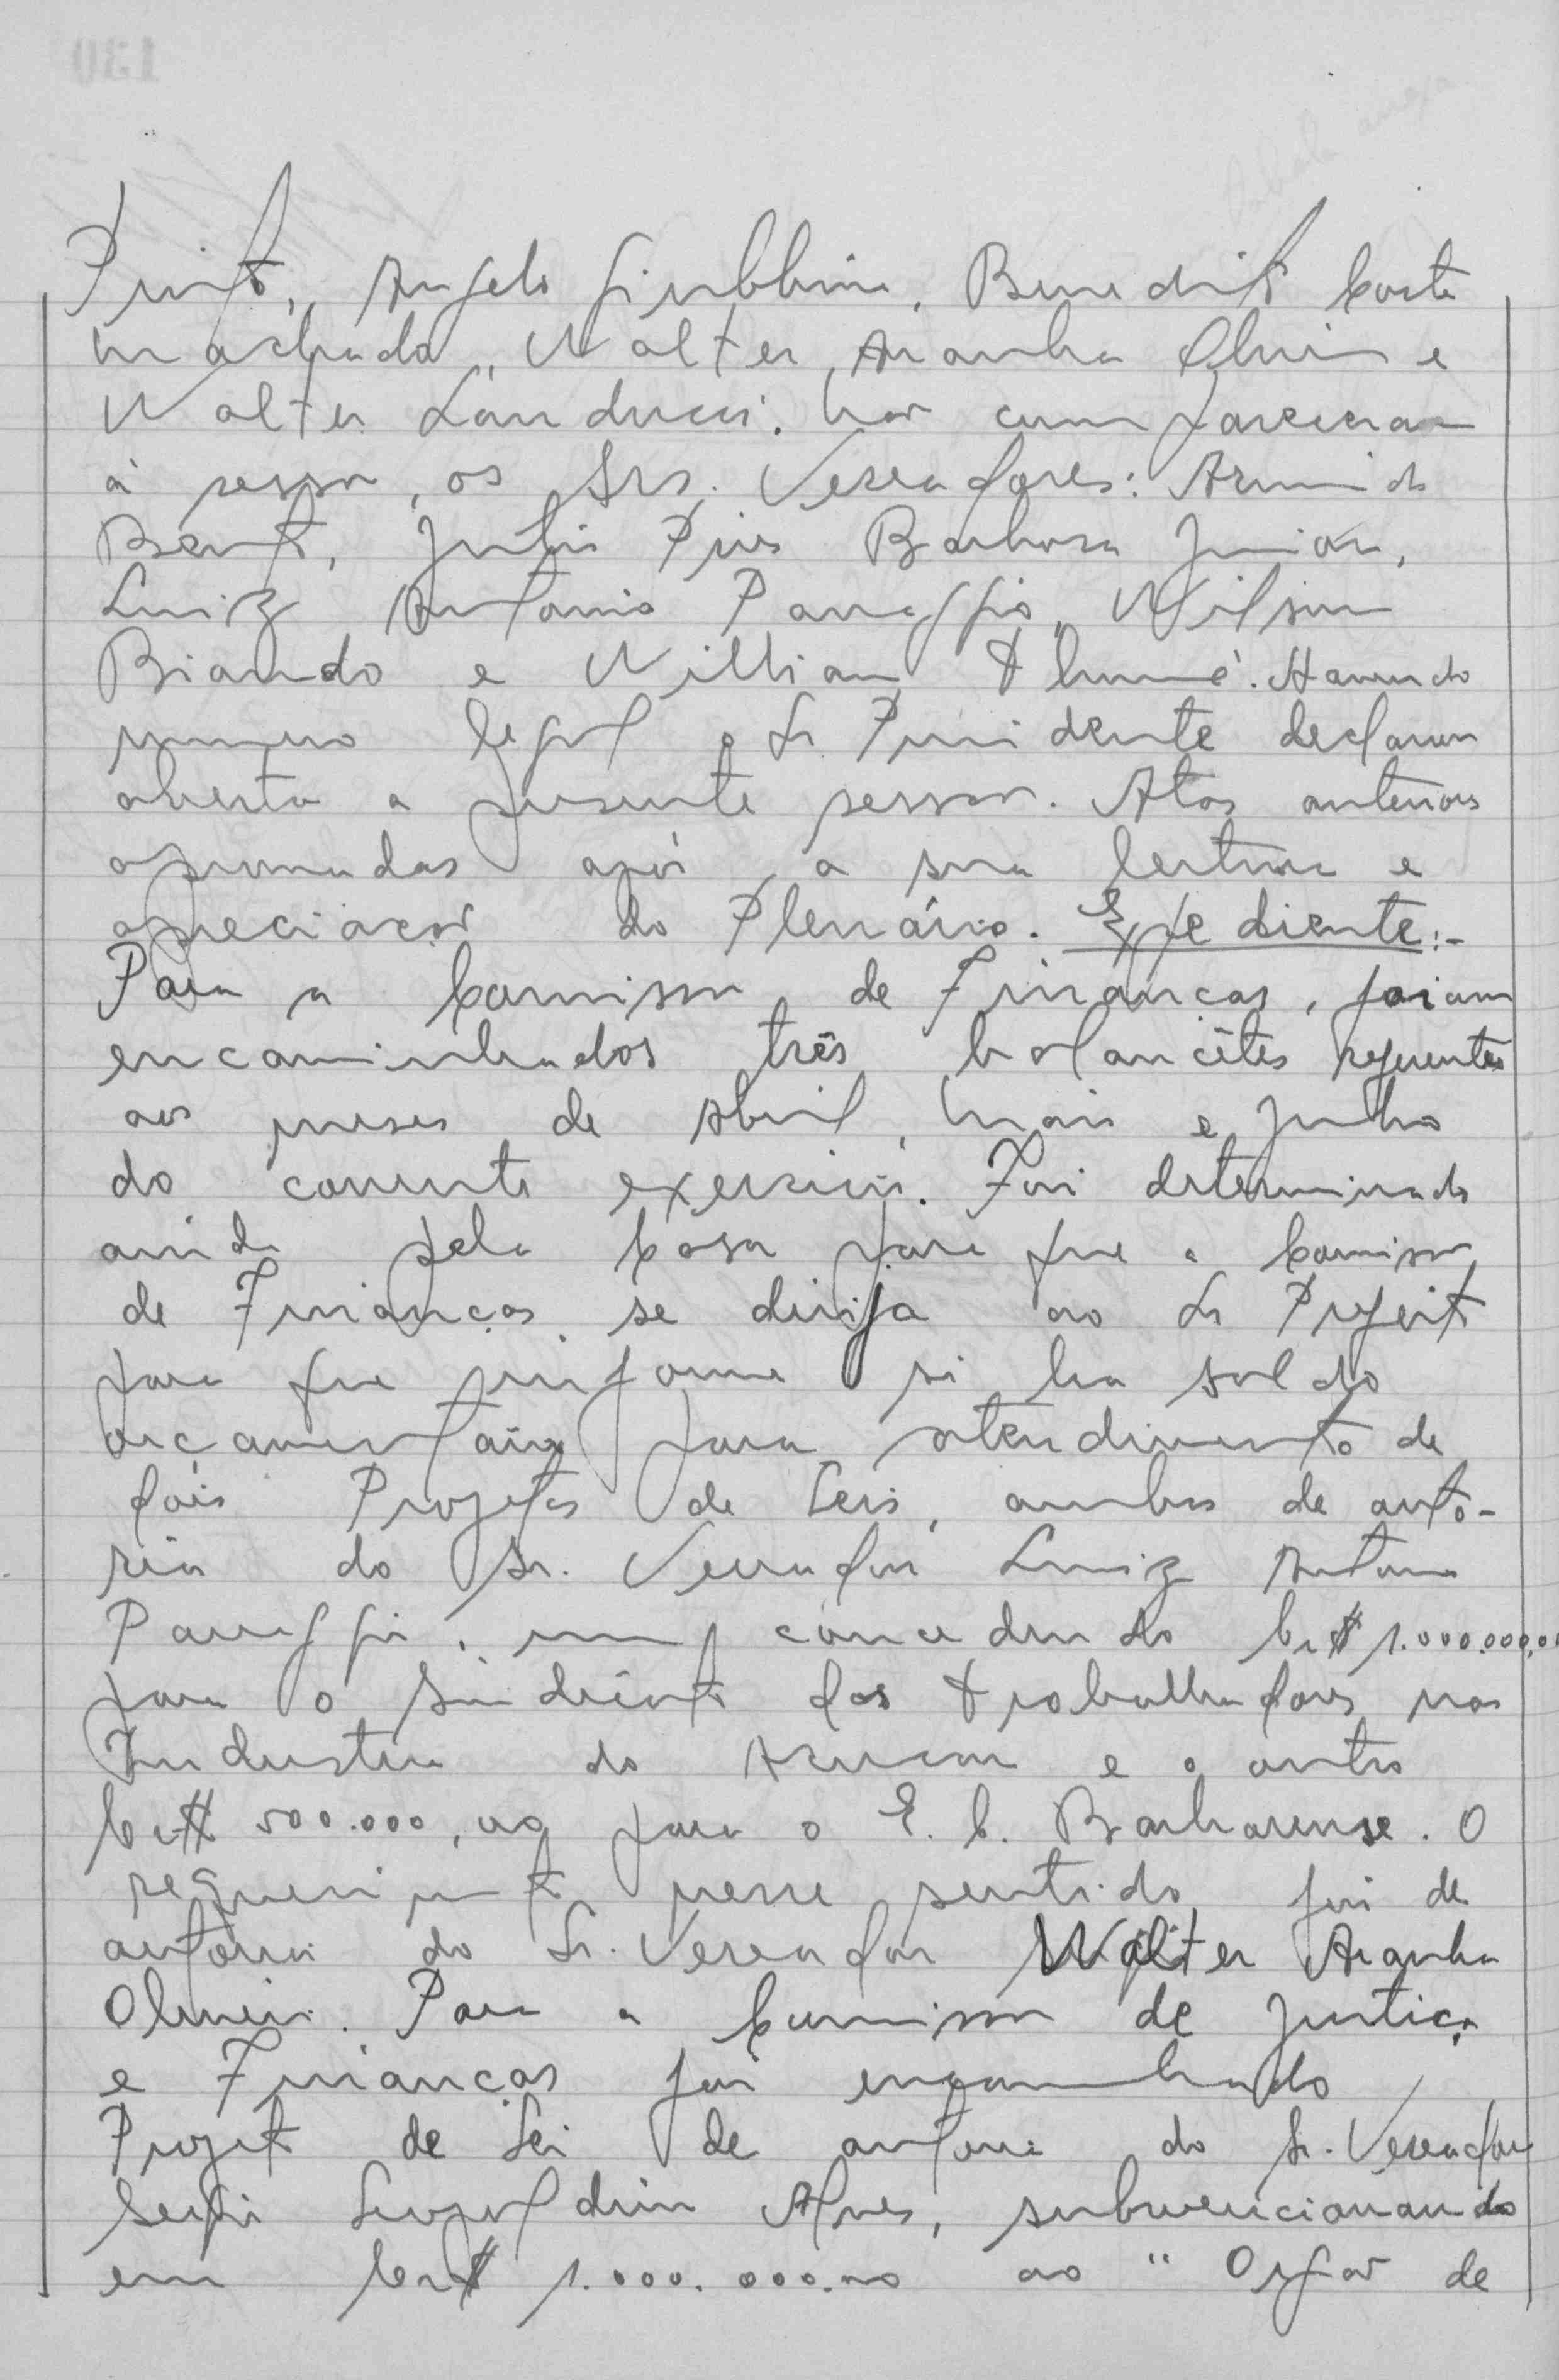 Pinto, Angelo Giubbina, Benedito Costa
Machado, Walter Aranha Oliveira e
Walter Landucci. Não compareceram
à sessão, os Srs. Vereadores: Armindo
Bento, Julio Pires Barbosa Junior,
Luiz Antonio Panaggio, Wilson
Biando e Willian Thumé. Havendo
numero legal o Sr Presidente declarou
aberta a presente sessão. Atas anteriores
aprovadas após a sua leitura e
apreciação do Plenário. Expediente:-
Para a Comissão de Finanças, foram
encaminhados três balancêtes referentes
aos meses de Abril, Maio e Junho
do corrente exercicio. Foi determinado
ainda pela Casa para que a Comissão
de Finanças se dirija ao Sr Prefeito
para que informe si ha saldo
orçamentário para atendimento de
dois Projetos de Leis, ambos de auto-
ria do Sr. Vereador Luiz Antonio
Panaggio, um concedendo Cr$ 1.000.000,00
para o Sindicato dos Trabalhadores nas
Industria do Açucar e o outro
Cr$ 500.000,00 para o E. C. Barbarense. O
requerimento nesse sentido foi de
autoria do Sr. Vereador Walter Aranha
Oliveira. Para a Comissão de Justiça
e Finanças foi encaminhado
Projeto de Lei de autoria do Sr. Vereador
Sergio Leopoldino Alves, subvencionando
em Cr$ 1.000.000.00 ao "Orgão de